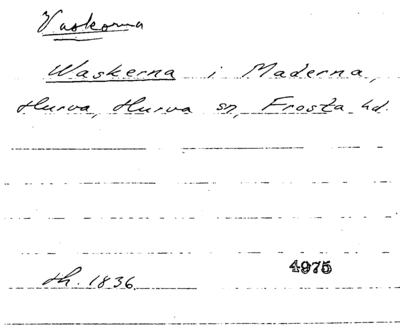 Vaskorna
Waskerna i Maderna,
Hurva, Hurva sn, Frosta hd.
th. 1836
4975